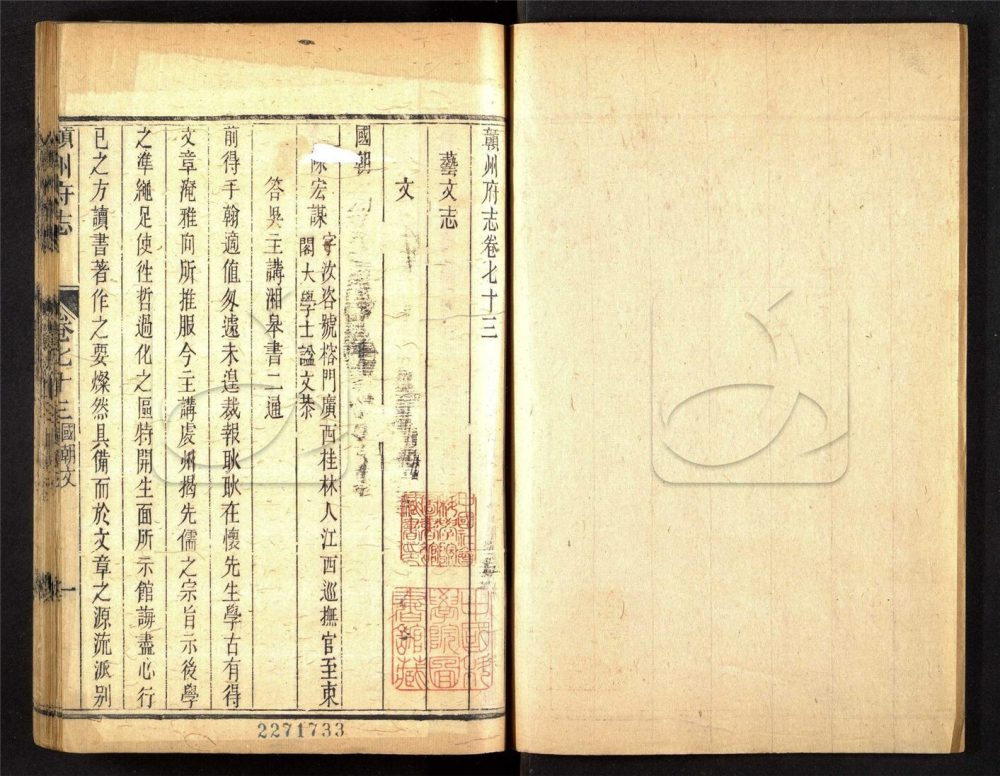 贛州府志卷七十三
藝文志
文
國朝
陳宏謀字汝咨號榕門廣西桂林人江西巡撫官至東
閣大學士諡文恭
答吳主講湘皋書二通
前得手翰適值匆遽未遑裁報耿耿在懷先生學古有得
文章淹雅向所推服今主講虔州揭先儒之宗旨示後學
之準繩足使徃哲過化之區特開生面所示館誨盡心行
已之方讀書著作之要燦然具備而於文章之源流派别
贛州府志
卷七十三
國朝文
一
2271733